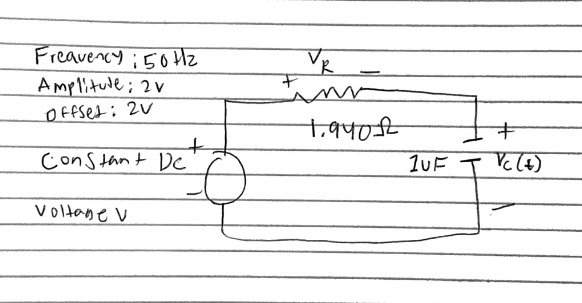 Freauency: 50Hz
Amplitude: 2v
Offset: 2V
VR
+ −
1.940Ω
Constant DC
+
−
Voltage V
1uF
+
Vc(t)
−